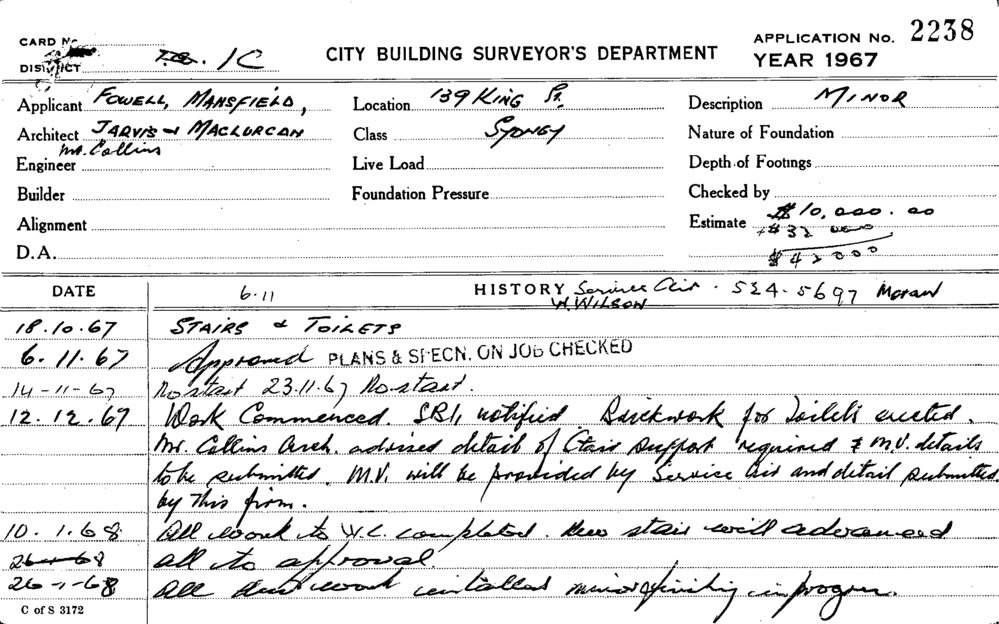 CARD No.
DISTRICT 1C
CITY BUILDING SURVEYOR'S DEPARTMENT
APPLICATION No. 2238
YEAR 1967
Applicant FOWELL, MANSFIELD,
Location 139 KING ST.
Description MINOR
Architect JARVIS & MACLURCAN
Class SYDNEY
Nature of Foundation
Mr. Collins
Engineer
Live Load
Depth of Footings
Builder
Foundation Pressure
Checked by
Alignment
Estimate $10,000.00
+$32 000
D.A.
$42000
DATE
6.11
HISTORY Service Air. 524.5697 Moran
W. WILSON
18.10.67 STAIRS & TOILETS
6.11.67 Approved PLANS & SPECN. ON JOB CHECKED
14-11-67 No start 23.11.67 No start.
12.12.67 Work Commenced. SRI, notified Brickwork for Toilets erected.
Mr. Collins Arch. advised detail of Stair support required & M.V. details
to be submitted. M.V. will be provided by Service Air and detail submitted
by this firm.
10.1.68 All work to W.C. completed. New stair well advanced
all to approval.
26-1-68 All duct work installed minor finishing in progress.
C of S 3172